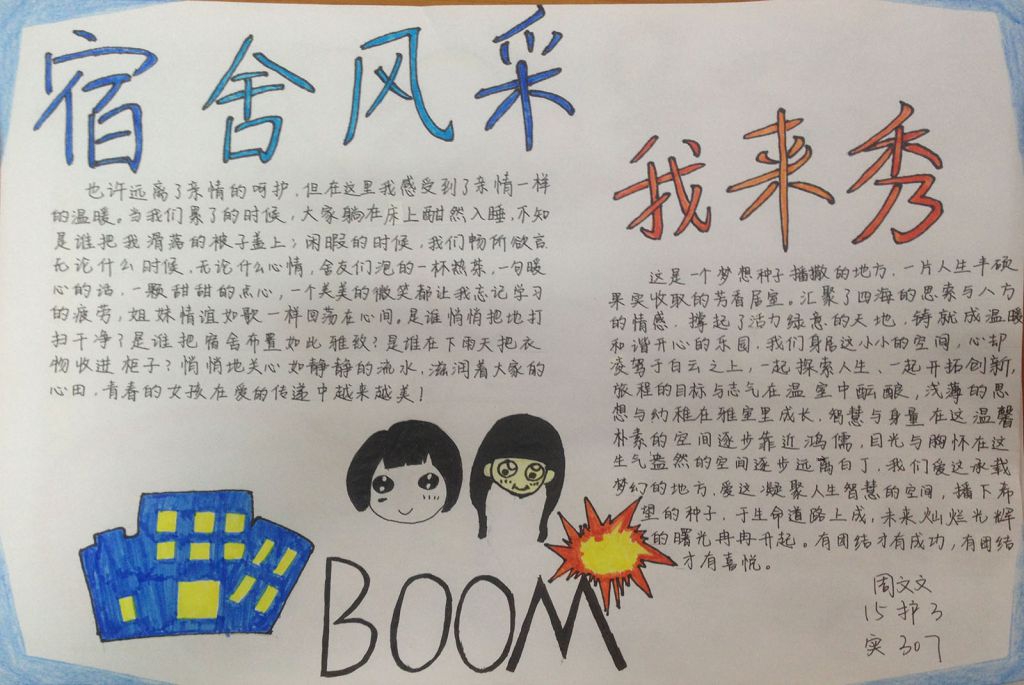 宿舍风采
我来秀
也许远离了亲情的呵护,但在这里我感受到了亲情一样
的温暖。当我们累了的时候,大家躺在床上酣然入睡,不知
是谁把我滑落的被子盖上;闲暇的时候,我们畅所欲言
无论什么时候,无论什么心情,舍友们泡的一杯热茶,一句暖
心的话,一颗甜甜的点心,一个美美的微笑都让我忘记学习
的疲劳,姐妹情谊如歌一样回荡在心间。是谁悄悄把地打
扫干净了是谁把宿舍布置如此雅致?是谁在下雨天把衣
物收进柜子?悄悄地关心如静静的流水,滋润着大家的
心田,青春的女孩在爱的传递中越来越美!
这是一个梦想种子播撒的地方,一片人生丰硕
果实收取的芳香居室。汇聚了四海的思索与八方
的情感,撑起了活力绿意的天地,铸就成温暖
和谐开心的乐园,我们身居这小小的空间,心却
凌驾于白云之上,一起探索人生、一起开拓创新,
旅程的目标与志气在温室中酝酿,浅薄的思
想与幼稚在雅室里成长,智慧与身量在这温馨
朴素的空间逐步靠近鸿儒,目光与胸怀在这
生气盎然的空间逐步远离白丁,我们爱这承载
梦幻的地方,爱这凝聚人生智慧的空间,播下希
望的种子,于生命道路上成,未来灿烂光辉
的曙光冉冉升起。有团结才有成功,有团结
才有喜悦。
BOOM
周文文
15护3
实307